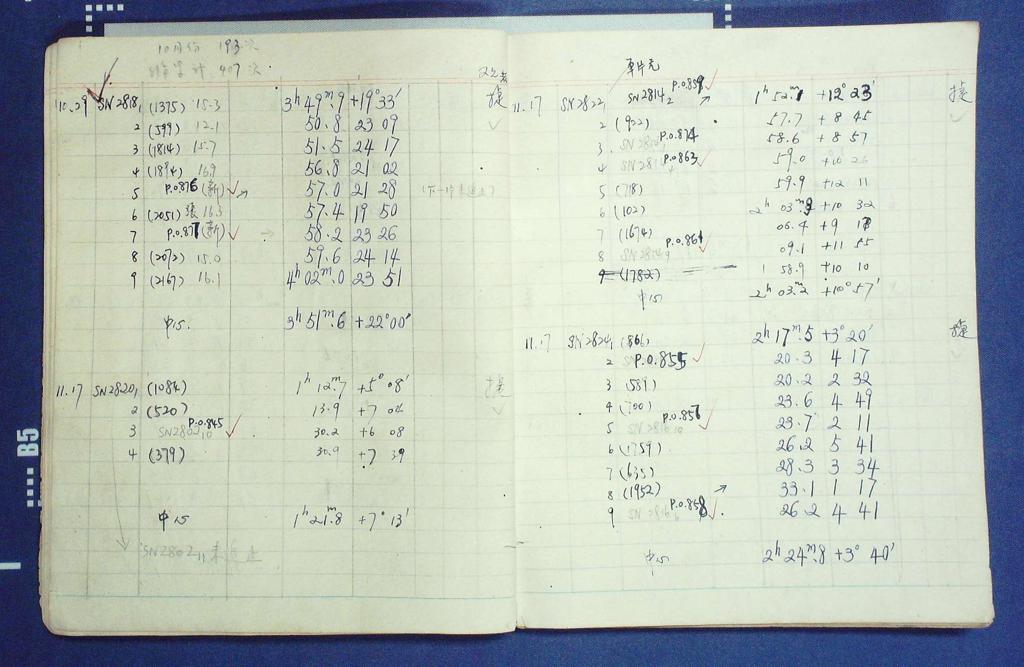 10月份 193次
407次
10.29 SN2818₁ (1375) 15.3 3ʰ 49ᵐ.9 +19°33′ 捷
2 (599) 12.1 50.8 23 09
3 (1814) 15.7 51.5 24 17
4 (1894) 16.9 56.8 21 02
5 P.O.876 (新) ✓ 57.0 21 28
6 (2051) 16.3 57.4 19 50
7 P.O.877 (新) ✓ → 58.2 23 26
8 (2072) 15.0 59.6 24 14
9 (2167) 16.1 4ʰ 02ᵐ.0 23 51
中心 3ʰ 51ᵐ.6 +22°00′
11.17 SN2820₁ (1084) 1ʰ 12ᵐ.7 +5° 08′ 捷
2 (520) 13.9 +7 04
3 SN2802₁₀ P.O.845 ✓ 30.2 +6 08
4 (379) 30.9 +7 39
中心 1ʰ 21ᵐ.8 +7° 13′
SN2802₁₁
11.17 SN2822₁ SN2814₂ P.O.859 ✓ 1ʰ 52ᵐ.1 +12° 23′ 捷
2 (922) 57.7 +8 45
3 P.O.874 58.6 +8 57
4 P.O.863 ✓ 59.0 +10 26
5 (718) 59.9 +12 11
6 (102) 2ʰ 03ᵐ.3 +10 32
7 (1674) 06.4 +9 17
8 P.O.861 ✓ 09.1 +11 55
9 (1782) 1 58.9 +10 10
中心 2ʰ 03ᵐ.2 +10° 57′
11.17 SN2824₁ (866) 2ʰ 17ᵐ.5 +3° 20′ 捷
2 P.O.855 ✓ 20.3 4 17
3 (589) 20.2 2 32
4 (700) 23.6 4 49
5 P.O.857 ✓ 23.7 2 11
6 (1759) 26.2 5 41
7 (635) 28.3 3 34
8 (1952) 33.1 1 17
9 P.O.858 ✓ 26.2 4 41
中心 2ʰ 24ᵐ.8 +3° 40′
B5